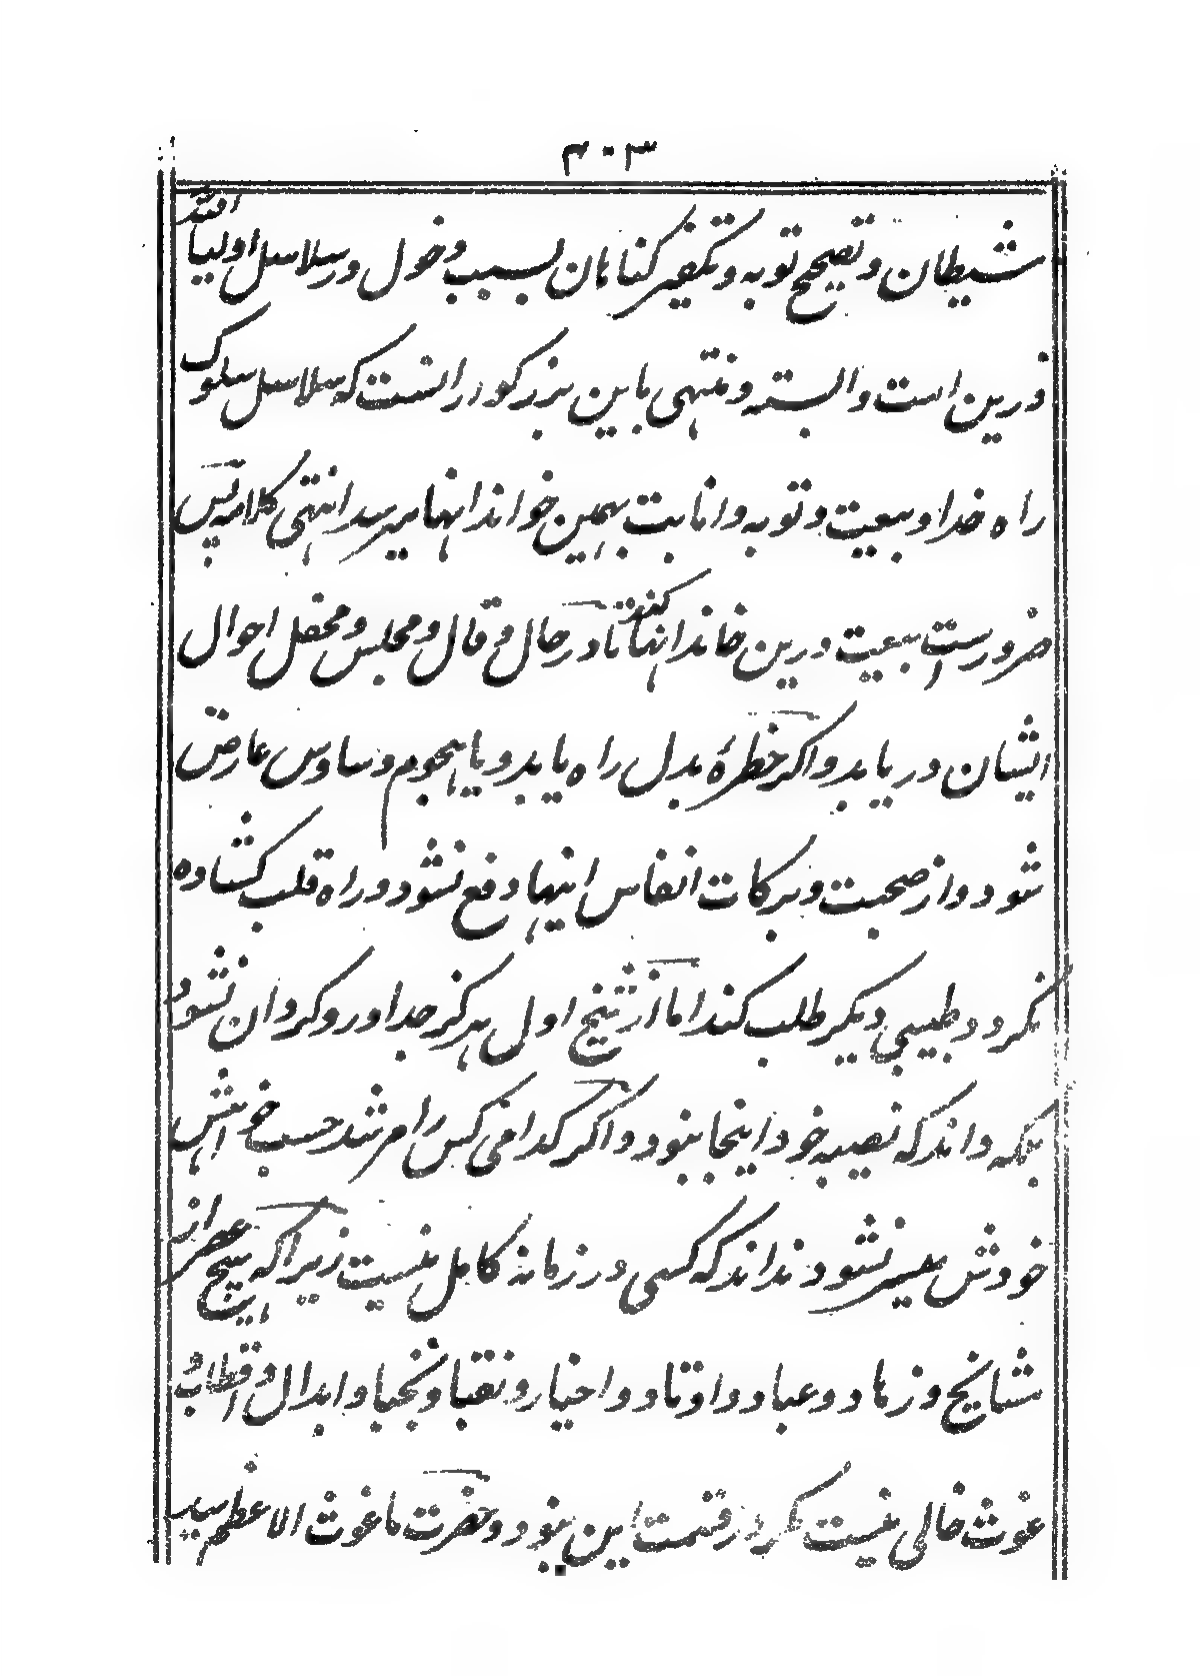 ۳۰۳
شیطان و تصحیح توبه و تکفیر کناهان بسبب دخول در سلاسل اولیاء الله
درین است وابسته و منتهی باین بزرکوارانست که سلاسل سلوک
راه خدا و بیعت و توبه و انابت بهمین خواندانها میرسد انتهی کلامه پس
ضرورست بیعت درین خاندانها کنند تا در حال و قال و مجلس و محفل احوال
ایشان دریابد و اکر خطرۀ بدل راه یابد و یا هجوم وساوس عارض
شود و از صحبت و برکات انفاس اینها دفع نشود و راه قلب کشاده
نکردد طبیبی دیکر طلب کند اما از شیخ اول هرکز جدا و روکردان نشود
بلکه داند که نصیبه خود اینجا نبود و اکر کدامی کس را مرشد حسب خواهش
خودش میسر نشود نداند که کسی در زمانه کامل نیست زیرا که هیچ عصر از
مشایخ و زهاد و عباد و اوتاد و اخیار و نقبا و نجبا و ابدال و اقطاب و
غوث خالی نیست مکر در قسمت این نبود و حضرت ما غوث الاعظم